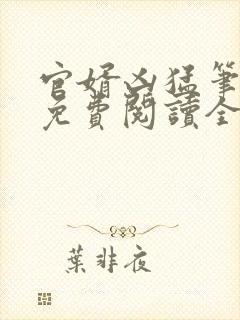 官婿凶猛筆
免費閱讀全
葉非夜